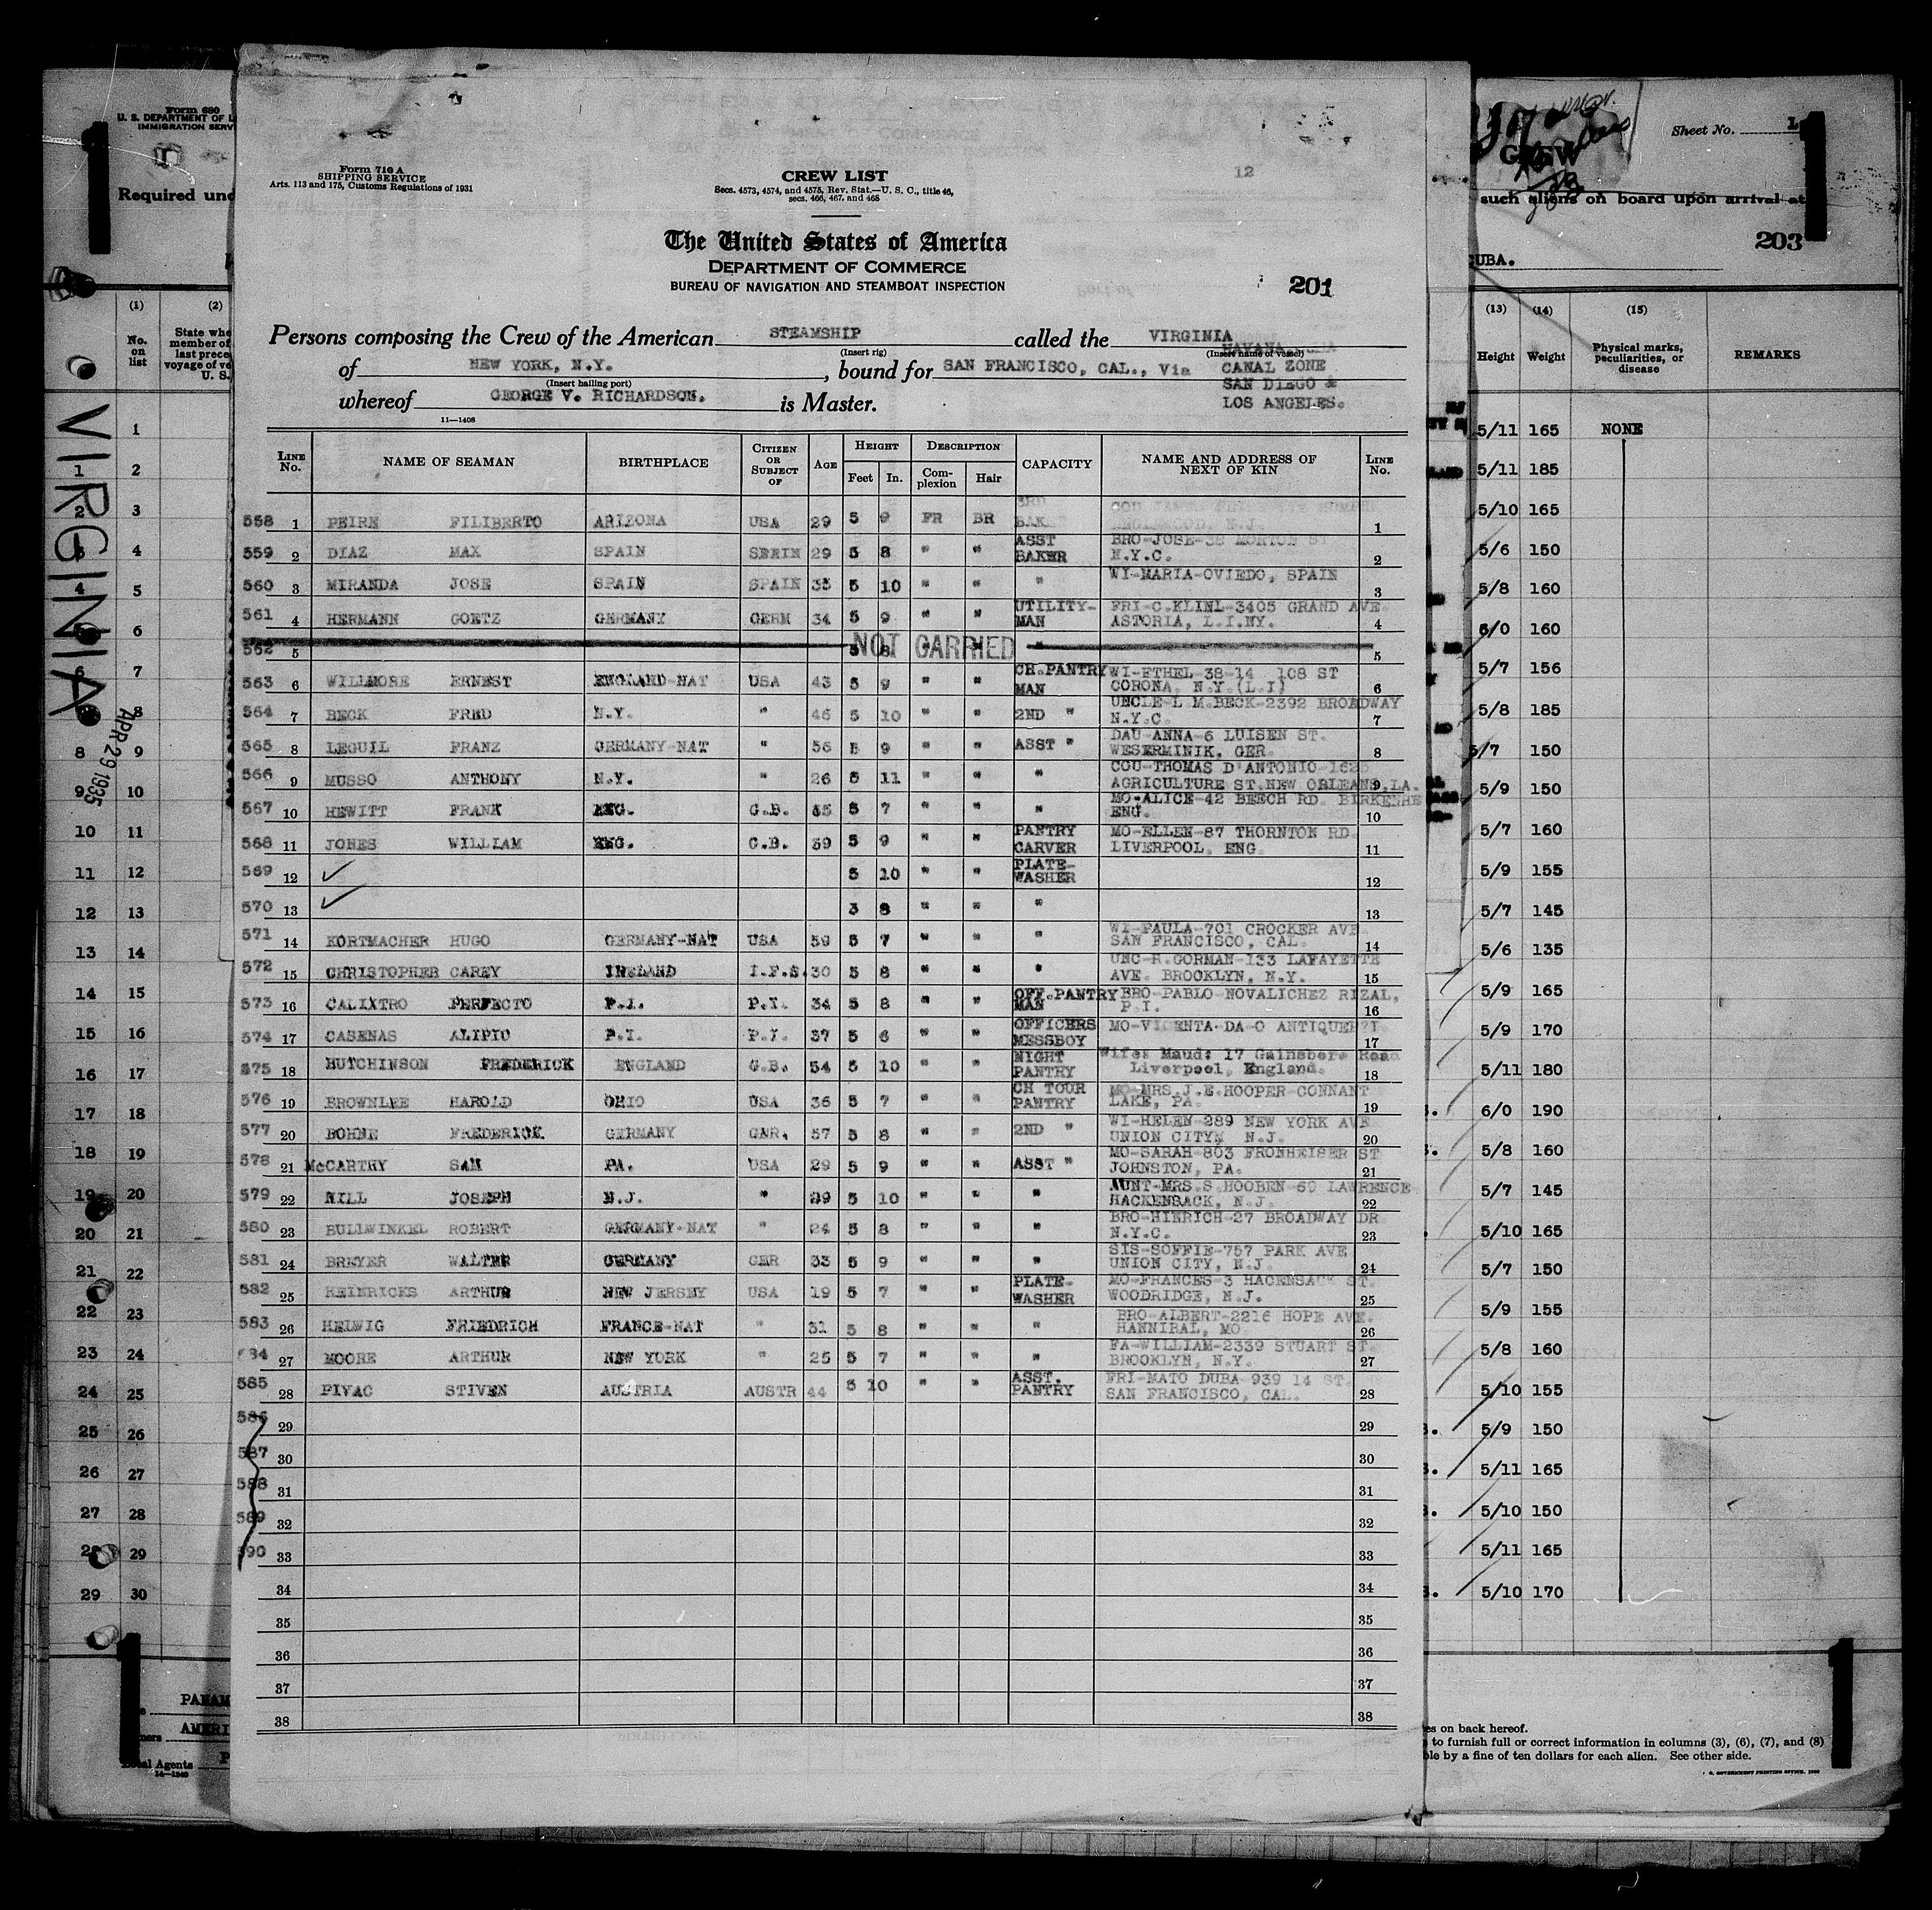 Form 680
U. S. DEPARTMENT OF L
IMMIGRATION SERV
Required und
(1) (2)
No. on list
State whe
member of
last prece
voyage of ve
U. S.
VIRGINIA
APR 29 1935
Form 710 A
SHIPPING SERVICE
Arts. 113 and 175, Customs Regulations of 1931
CREW LIST
Secs. 4573, 4574, and 4575, Rev. Stat.—U. S. C., title 46,
secs. 466, 467, and 468
12
The United States of America
DEPARTMENT OF COMMERCE
BUREAU OF NAVIGATION AND STEAMBOAT INSPECTION
201
Persons composing the Crew of the American STEAMSHIP called the VIRGINIA
(Insert rig) (Insert name of vessel) HAVANA
of NEW YORK, N.Y., bound for SAN FRANCISCO, CAL., Via CANAL ZONE
(Insert hailing port) SAN DIEGO &
whereof GEORGE V. RICHARDSON. is Master. LOS ANGELES.
11—1408
LINE No. NAME OF SEAMAN BIRTHPLACE CITIZEN OR SUBJECT OF AGE HEIGHT Feet In. DESCRIPTION Complexion Hair CAPACITY NAME AND ADDRESS OF NEXT OF KIN LINE No.
558 1 PEIRE FILIBERTO ARIZONA USA 29 5 9 FR BR 3RD BAK 1
559 2 DIAZ MAX SPAIN 29 5 8 " " ASST BAKER BRO-JOSE-38 MORTON ST N.Y.C. 2
560 3 MIRANDA JOSE SPAIN SPAIN 35 5 10 " " " WI-MARIA-OVIEDO, SPAIN 3
561 4 HERMANN GOETZ GERMANY GERM 34 5 9 " " UTILITY-MAN FRI-C.KLINL-3405 GRAND AVE. ASTORIA, L.I.NY. 4
562 5 NOT CARRIED 5 8 " 5
563 6 WILLMORE ERNEST ENGLAND-NAT USA 43 5 9 " " CH.PANTRY MAN WI-ETHEL-38-14 108 ST CORONA, N.Y.(L.I) 6
564 7 BECK FRED N.Y. " 46 5 10 " " 2ND " UNCLE-L.M.BECK-2392 BROADWAY N.Y.C. 7
565 8 LEGUIL FRANZ GERMANY-NAT " 56 5 9 " " ASST " DAU-ANNA-6 LUISEN ST. WESERMINIK, GER. 8
566 9 MUSSO ANTHONY N.Y. " 26 5 11 " " " COU-THOMAS D'ANTONIO-1625 AGRICULTURE ST.NEW ORLEANS,LA. 9
567 10 HEWITT FRANK ENG. G.B. 5 7 " " " MO-ALICE-42 BEECH RD. BIRKENHE ENG. 10
568 11 JONES WILLIAM ENG. G.B. 39 5 9 " " PANTRY CARVER MO-ELLEN-87 THORNTON RD. LIVERPOOL, ENG. 11
569 12 ✓ 5 10 " " PLATE-WASHER 12
570 13 ✓ 8 " " " 13
571 14 KORTMACHER HUGO GERMANY-NAT USA 39 5 7 " " " WI-PAULA-701 CROCKER AVE SAN FRANCISCO, CAL. 14
572 15 CHRISTOPHER CAREY IRELAND I.F.S. 30 5 8 " " " UNC-R.GORMAN-133 LAFAYETTE AVE. BROOKLYN, N.Y. 15
573 16 CALIXTRO PERFECTO P.I. P.I. 34 5 8 " " OFF.PANTRY MAN BRO-PABLO-NOVALICHEZ RIZAL, P.I. 16
574 17 CASENAS ALIPIO P.I. P.I. 37 5 6 " " OFFICERS MESSBOY MO-VICENTA-DA-O ANTIQUE 17
575 18 HUTCHINSON FREDERICK ENGLAND G.B. 54 5 10 " " NIGHT PANTRY Wife: Maud: 17 Gainsboro Road Liverpool, England. 18
576 19 BROWNLEE HAROLD OHIO USA 36 5 7 " " CH TOUR PANTRY MO-MRS.J.E.HOOPER-CONNANT LAKE, PA. 19
577 20 BOHNE FREDERICK GERMANY GER. 57 5 8 " " 2ND " WI-HELEN-289 NEW YORK AVE UNION CITY, N.J. 20
578 21 McCARTHY SAM PA. USA 29 5 9 " " ASST " MO-SARAH-803 FRONHEISER ST JOHNSTON, PA. 21
579 22 HILL JOSEPH N.J. " 39 5 10 " " " AUNT-MRS.S.HOOBEN-60 LAWRENCE HACKENSACK, N.J. 22
580 23 BULLWINKEL ROBERT GERMANY-NAT " 24 5 8 " " " BRO-HINRICH-27 BROADWAY DR N.Y.C. 23
581 24 BREYER WALTER GERMANY GER 33 5 9 " " " SIS-SOFFIE-757 PARK AVE UNION CITY, N.J. 24
582 25 HEINRICHS ARTHUR NEW JERSEY USA 19 5 7 " " PLATE-WASHER MO-FRANCES-3 HACENSACK ST. WOODRIDGE, N.J. 25
583 26 HELWIG FRIEDRICH FRANCE-NAT " 31 5 8 " " " BRO-ALBERT-2216 HOPE AVE. HANNIBAL, MO. 26
584 27 MOORE ARTHUR NEW YORK " 25 5 7 " " " FA-WILLIAM-2339 STUART ST. BROOKLYN, N.Y. 27
585 28 PIVAC STIVEN AUSTRIA AUSTR 44 5 10 " " ASST. PANTRY FRI-MATO DUBA-939 14 ST. SAN FRANCISCO, CAL. 28
586 29 29
587 30 30
588 31 31
589 32 32
590 33 33
34 34
35 35
36 36
37 37
38 38
Sheet No. 1
CREW
such aliens on board upon arrival at
203
CUBA.
(13) (14) (15)
Height Weight Physical marks, peculiarities, or disease REMARKS
5/11 165 NONE
5/11 185
5/10 165
5/6 150
5/8 160
6/0 160
5/7 156
5/8 185
5/7 150
5/9 150
5/7 160
5/9 155
5/7 145
5/6 135
5/9 165
5/9 170
5/11 180
6/0 190
5/8 160
5/7 145
5/10 165
5/7 150
5/9 155
5/8 160
5/10 155
5/9 150
5/11 165
5/10 150
5/11 165
5/10 170
PANAM
AMERI
Local Agents P
es on back hereof.
to furnish full or correct information in columns (3), (6), (7), and (8)
ble by a fine of ten dollars for each alien. See other side.
GOVERNMENT PRINTING OFFICE